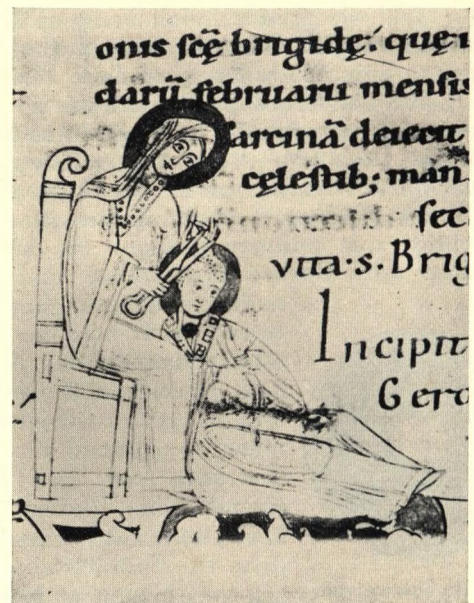 onis scę brigidę: quę
darū februarii mensis
sarcinā deiecit
cęlestib; man
sec
vita·s·Brig
Incipit
Gero